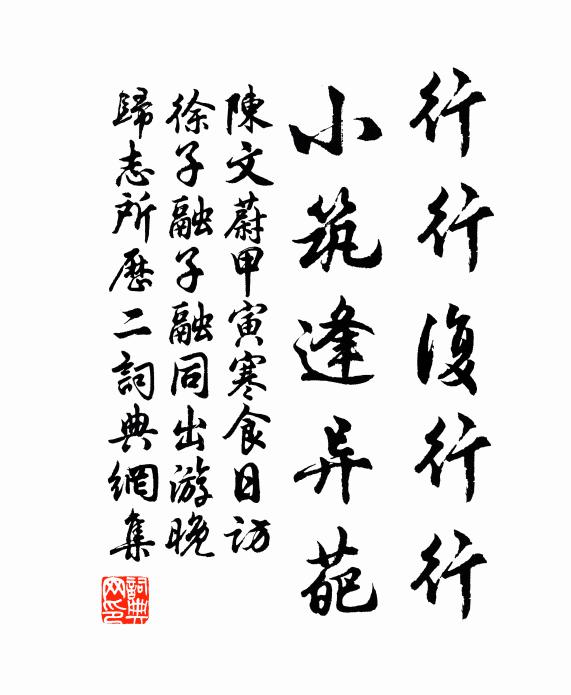 行行復行行
小筑逢异葩
陳文蔚甲寅寒食日訪
徐子融子融同出游晚
歸志所歷二詞典網集
詞典網印